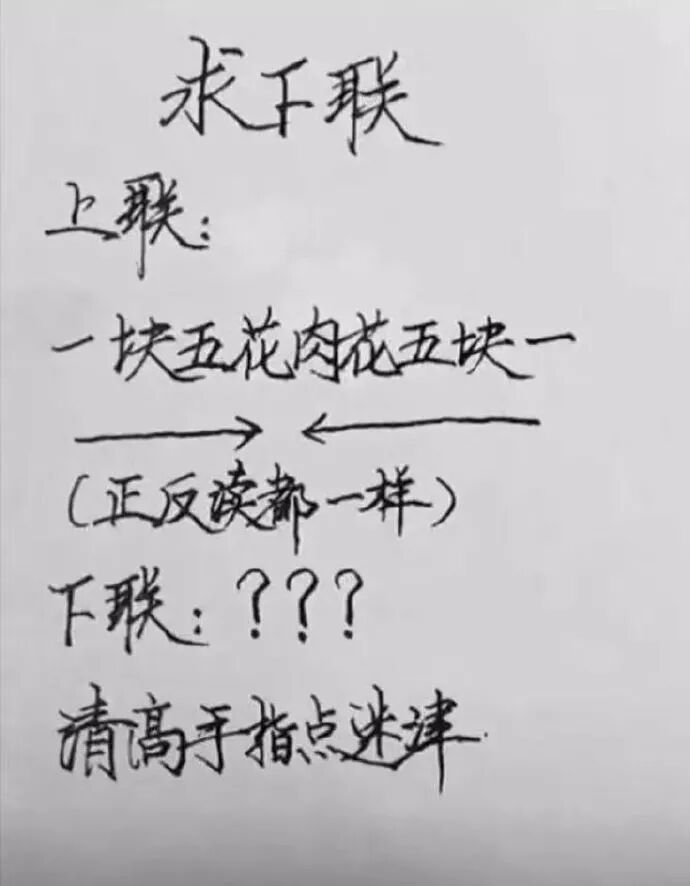 求下联
上联：
一块五花肉花五块一
（正反读都一样）
下联：？？？
请高手指点迷津.